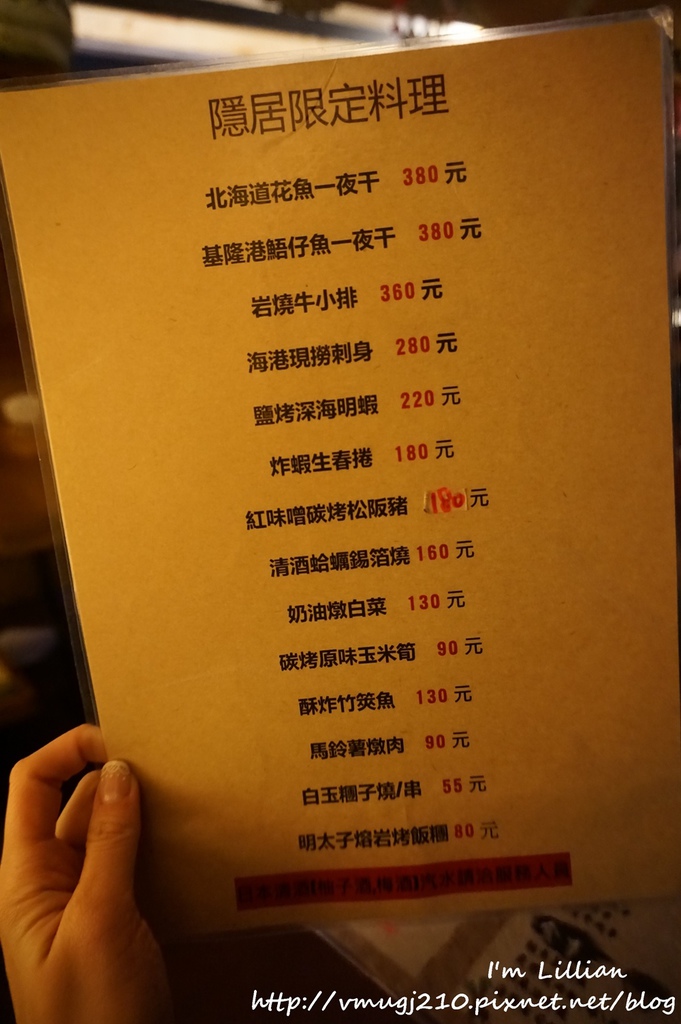 隱居限定料理
北海道花魚一夜干 380元
基隆港鯃仔魚一夜干 380元
岩燒牛小排 360元
海港現撈刺身 280元
鹽烤深海明蝦 220元
炸蝦生春捲 180元
紅味噌碳烤松阪豬 180元
清酒蛤蠣錫箔燒 160元
奶油燉白菜 130元
碳烤原味玉米筍 90元
酥炸竹筴魚 130元
馬鈴薯燉肉 90元
白玉糰子燒/串 55元
明太子熔岩烤飯糰 80元
日本清酒(柚子酒,梅酒)汽水請洽服務人員
I'm Lillian
http://vmugj210.pixnet.net/blog